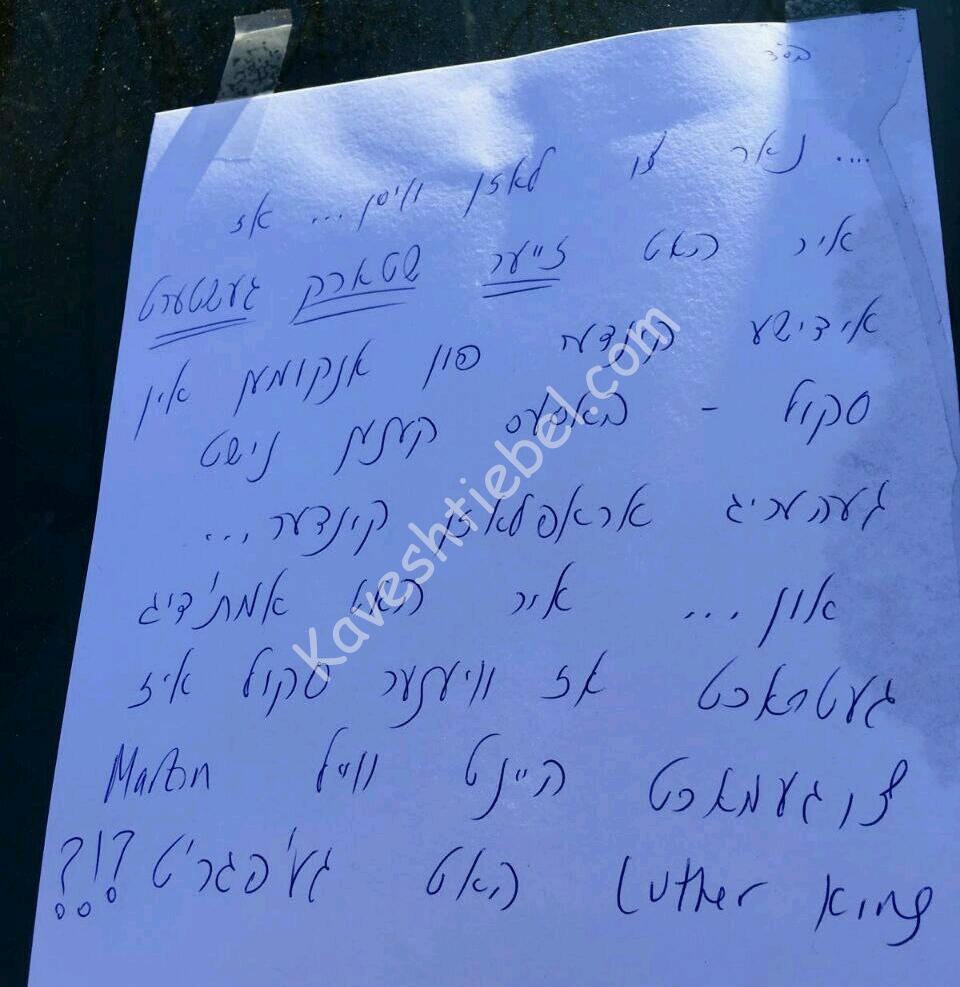 בס"ד
.... נאר צו לאזן וויסן ... אז
איר האט זייער שטארק געשטערט
אידישע קינדער פון אנקומען אין
סקול - באסעס קענען נישט
געהעריג אראפלאזן קינדער ...
און ... איר האט אמת'דיג
געטראכט אז וויענער סקול איז
צוגעמאכט היינט ווייל Martin
Luther King האט גע'פגר'ט ?!?
Kaveshtiebel.com